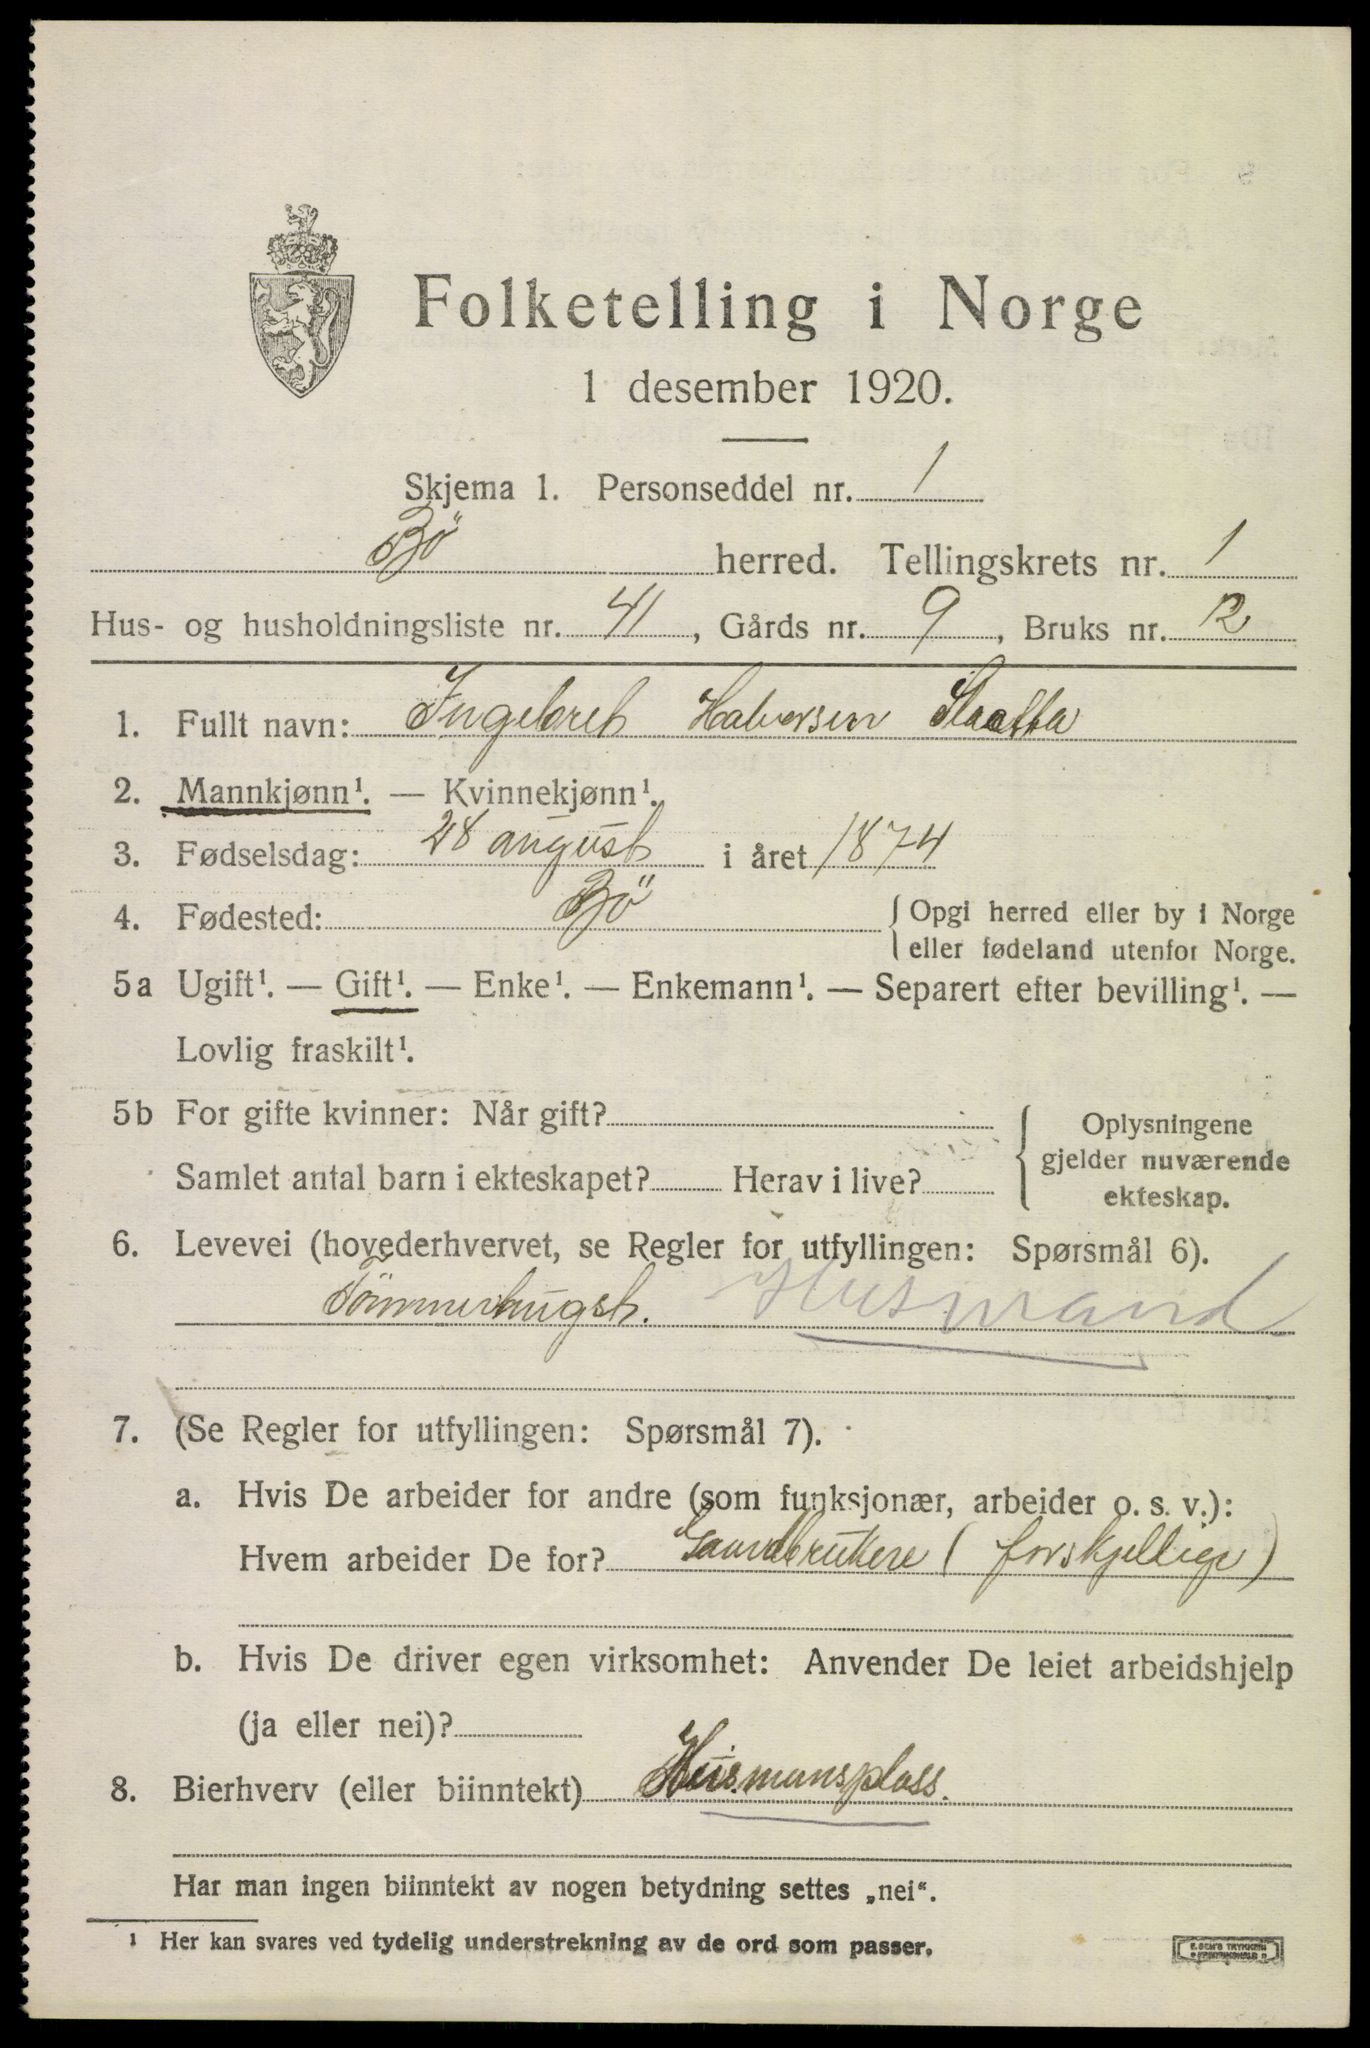 Folketelling i Norge
1 desember 1920.
Skjema 1. Personseddel nr. 1
Bö herred. Tellingskrets nr. 1
Hus- og husholdningsliste nr. 41, Gårds nr. 9, Bruks nr. 12
1. Fullt navn: Ingebret Halvorsen Slaatta
2. Mannkjønn¹. — Kvinnekjønn¹.
3. Fødselsdag: 28 august i året 1874
4. Fødested: Bö { Opgi herred eller by i Norge
eller fødeland utenfor Norge.
5a Ugift¹. — Gift¹. — Enke¹. — Enkemann¹. — Separert efter bevilling¹. —
Lovlig fraskilt¹.
5b For gifte kvinner: Når gift?
Samlet antal barn i ekteskapet? Herav i live?
Oplysningene
gjelder nuværende
ekteskap.
6. Levevei (hovederhvervet, se Regler for utfyllingen: Spørsmål 6).
Tömmerhugst. Husmand
7. (Se Regler for utfyllingen: Spørsmål 7).
a. Hvis De arbeider for andre (som funksjonær, arbeider o. s. v.):
Hvem arbeider De for? Gaardbrukere (forskjellige)
b. Hvis De driver egen virksomhet: Anvender De leiet arbeidshjelp
(ja eller nei)?
8. Bierhverv (eller biinntekt) Husmansplass.
Har man ingen biinntekt av nogen betydning settes „nei“.
¹ Her kan svares ved tydelig understrekning av de ord som passer.